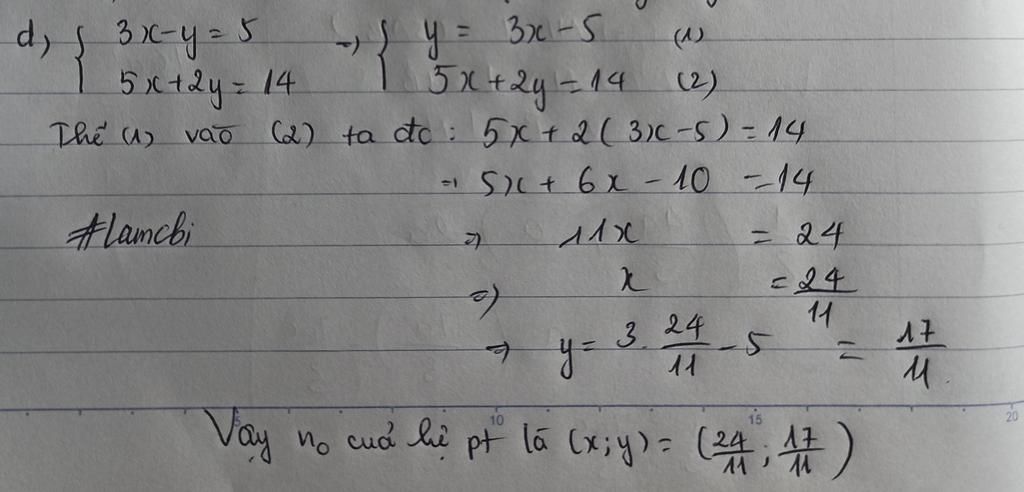 d, { 3x-y=5 → { y = 3x-5 (1)
5x+2y=14 5x+2y=14 (2)
Thế (1) vào (2) ta đc : 5x+2(3x-5)=14
⇒ 5x+6x-10 =14
#lamcbi ⇒ 11x = 24
⇒ x = 24/11
⇒ y= 3. 24/11 -5 = 17/11.
10 15 20
Vậy no cuả hệ pt là (x;y)= (24/11; 17/11)